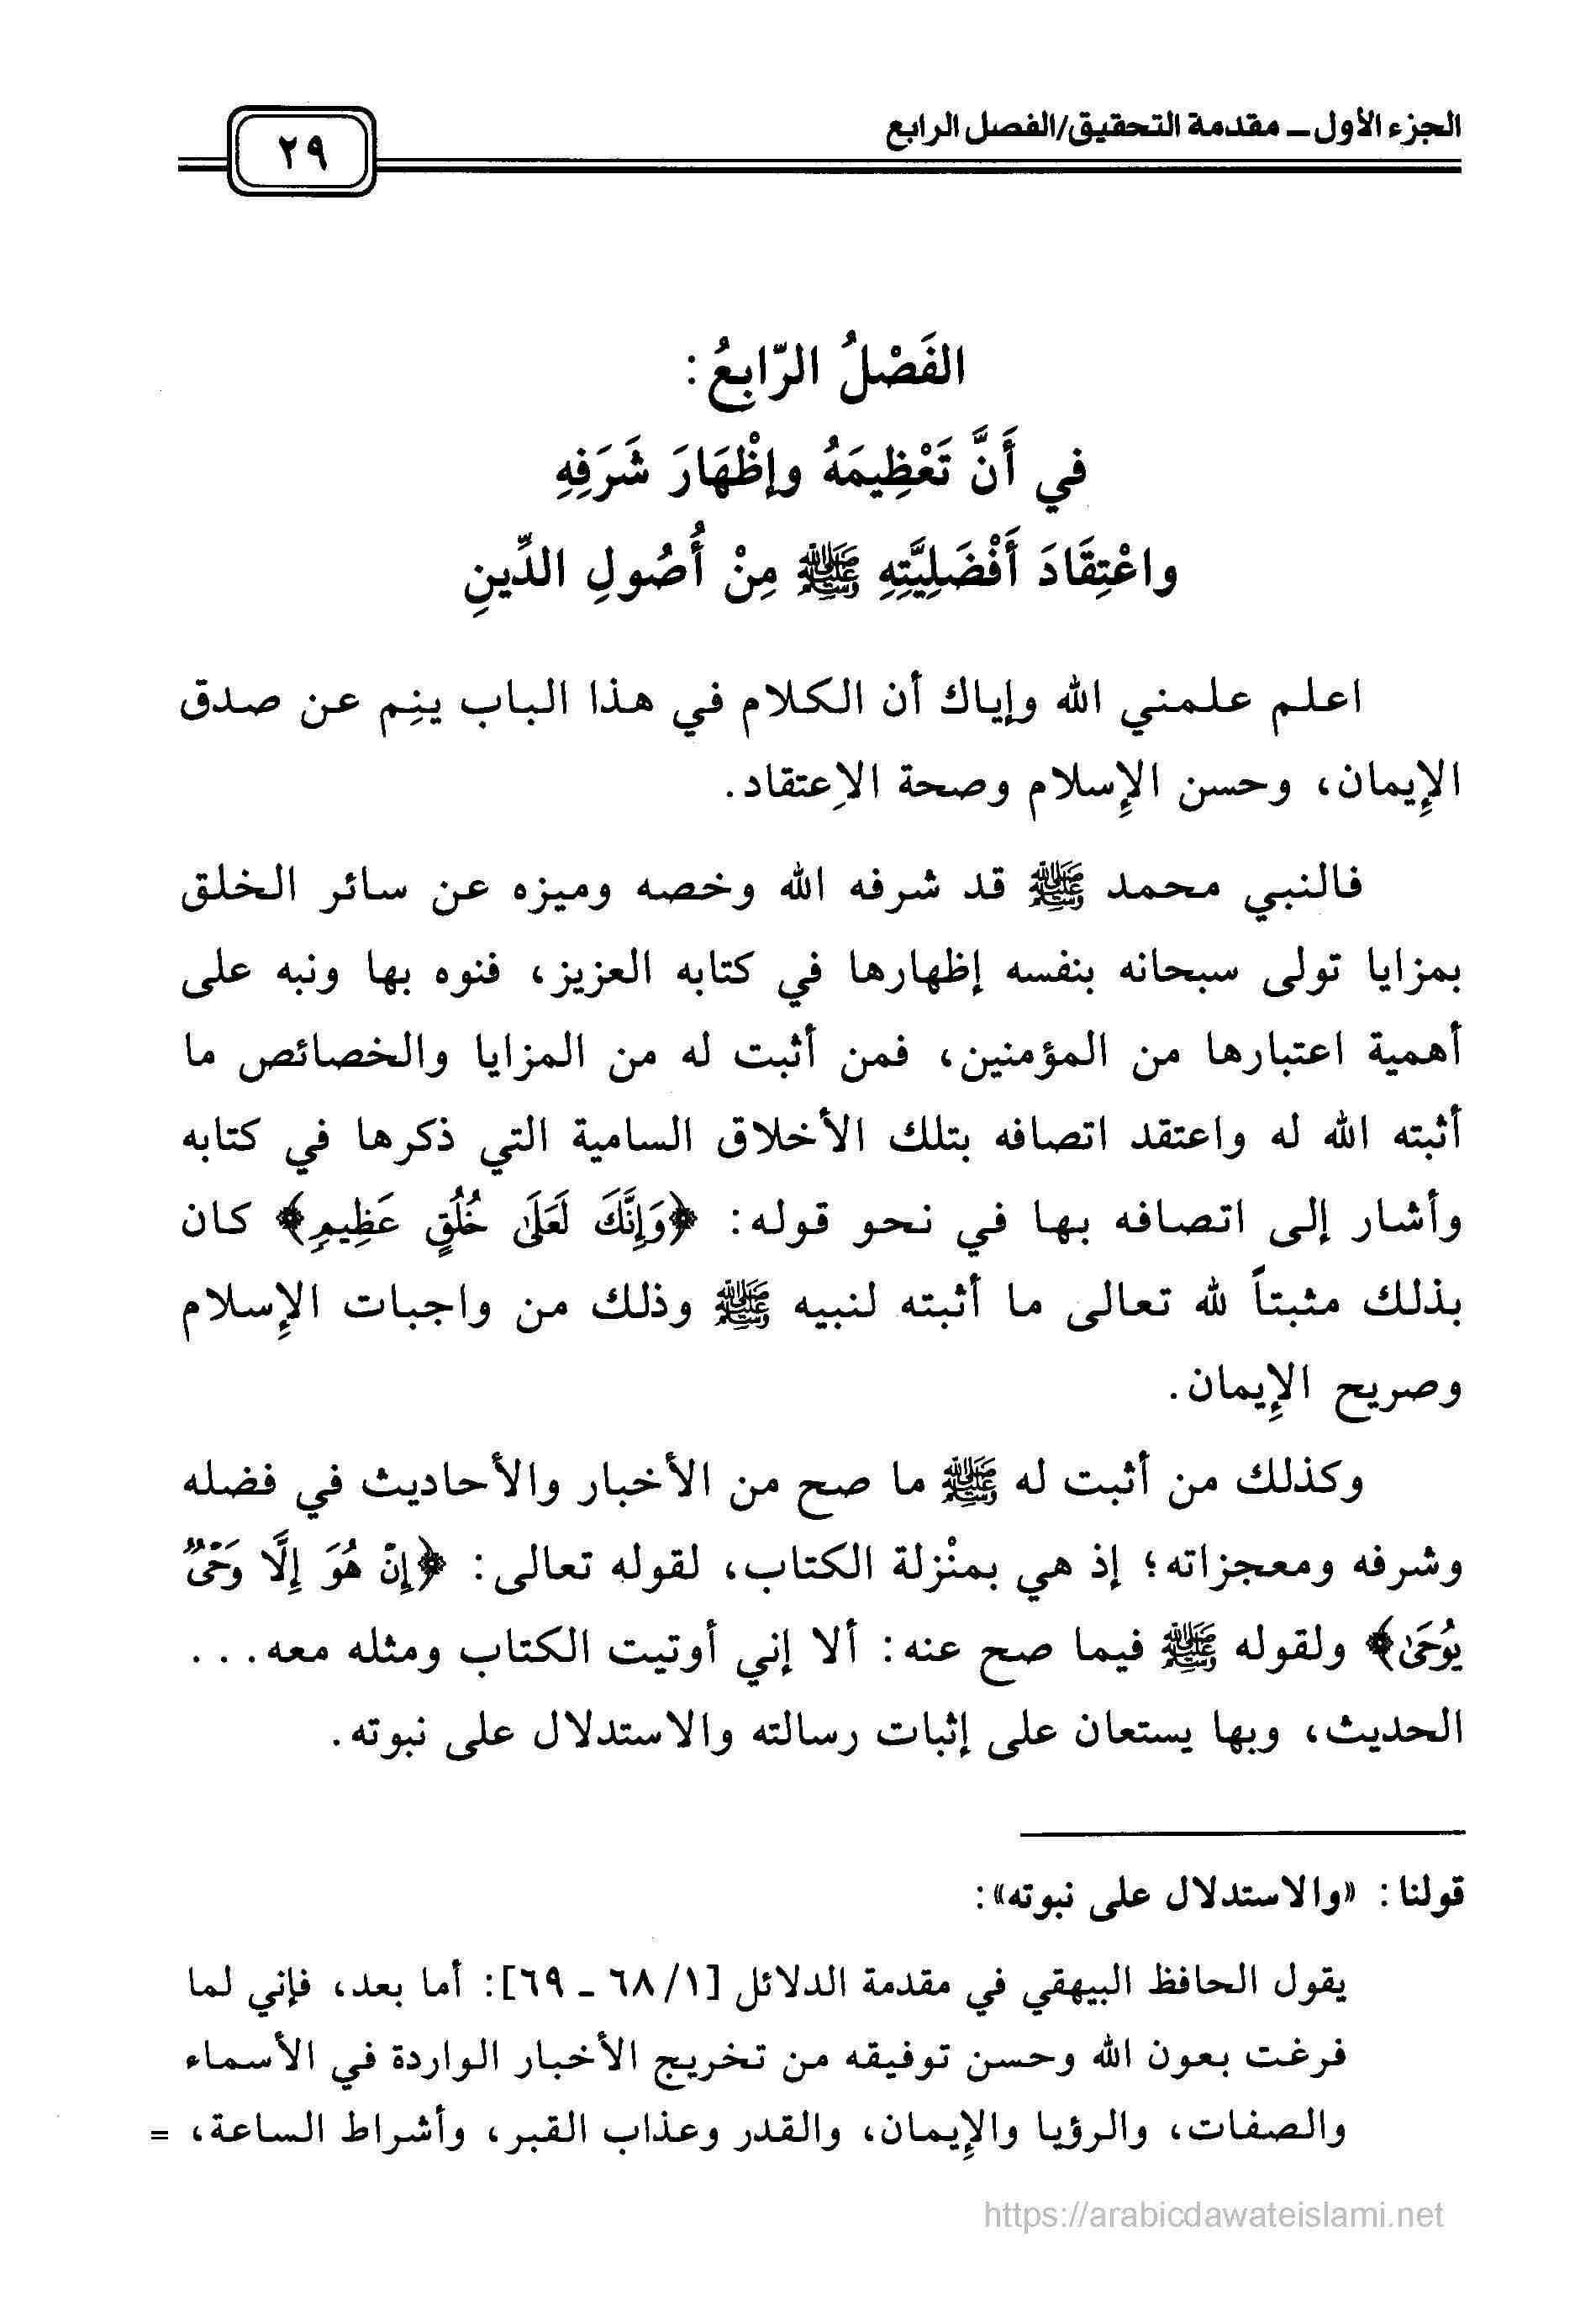 الجزء الأول ــ مقدمة التحقيق/الفصل الرابع
٢٩
الفَصْلُ الرَّابِعُ:
في أَنَّ تَعْظِيمَهُ وإظْهَارَ شَرَفِهِ
واعْتِقَادَ أَفْضَلِيَّتِهِ ﷺ مِنْ أُصُولِ الدِّينِ
اعلم علمني الله وإياك أن الكلام في هذا الباب ينِم عن صدق
الإِيمان، وحسن الإِسلام وصحة الاِعتقاد.
فالنبي محمد ﷺ قد شرفه الله وخصه وميزه عن سائر الخلق
بمزايا تولى سبحانه بنفسه إظهارها في كتابه العزيز، فنوه بها ونبه على
أهمية اعتبارها من المؤمنين، فمن أثبت له من المزايا والخصائص ما
أثبته الله له واعتقد اتصافه بتلك الأخلاق السامية التي ذكرها في كتابه
وأشار إلى اتصافه بها في نحو قوله: ﴿وَإِنَّكَ لَعَلَىٰ خُلُقٍ عَظِيمٍ﴾ كان
بذلك مثبتاً لله تعالى ما أثبته لنبيه ﷺ وذلك من واجبات الإِسلام
وصريح الإِيمان.
وكذلك من أثبت له ﷺ ما صح من الأخبار والأحاديث في فضله
وشرفه ومعجزاته؛ إذ هي بمنْزلة الكتاب، لقوله تعالى: ﴿إِنْ هُوَ إِلَّا وَحْىٌ
يُوحَىٰ﴾ ولقوله ﷺ فيما صح عنه: ألا إني أوتيت الكتاب ومثله معه...
الحديث، وبها يستعان على إثبات رسالته والاستدلال على نبوته.
قولنا: «والاستدلال على نبوته»:
يقول الحافظ البيهقي في مقدمة الدلائل [١/ ٦٨ ـ ٦٩]: أما بعد، فإني لما
فرغت بعون الله وحسن توفيقه من تخريج الأخبار الواردة في الأسماء
والصفات، والرؤيا والإِيمان، والقدر وعذاب القبر، وأشراط الساعة، =
https://arabicdawateislami.net